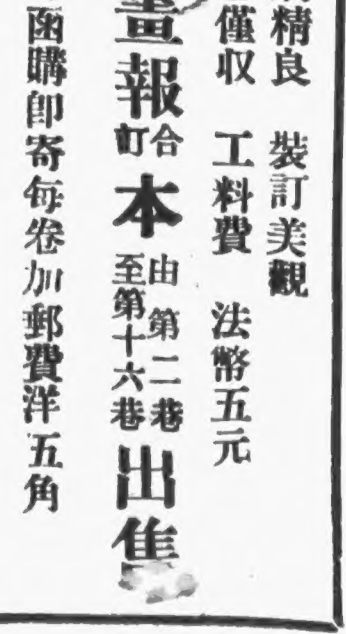 精良 裝訂美觀
僅收 工料費 法幣五元
畫報合訂本由第二巷至第十六巷出售
函購即寄每卷加郵費洋五角